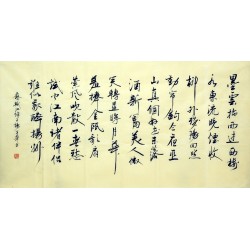 墨雲拖雨過西樓
水東流晚煙收
柳外殘陽回照
動簾鉤今夜巫
山真個好花未落
酒新篘美人微
笑轉星眸月華
羞捧金甌歌扇
縈風吹散一春愁
試問江南諸伴侶
誰似我醉揚州
蘇軾江城子